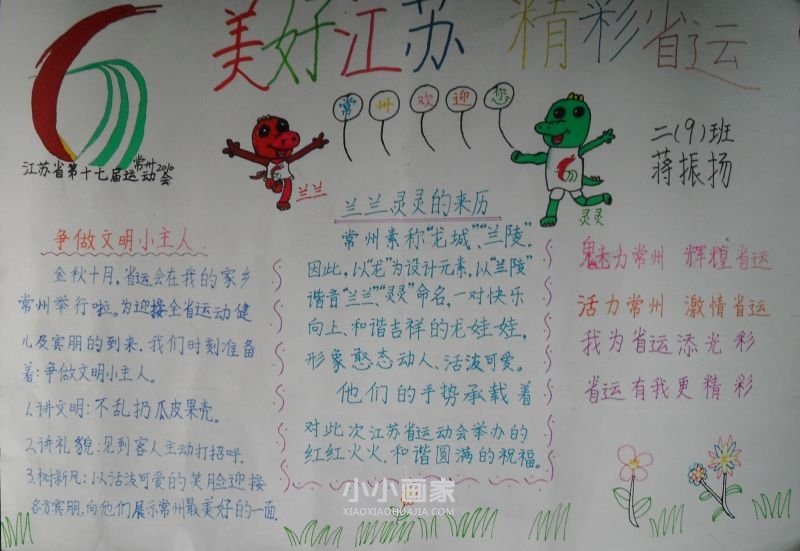 美好江苏 精彩省运
常州欢迎您
常州2010
江苏省第十七届运动会
二(9)班
蒋振扬
兰兰
灵灵
争做文明小主人
金秋十月,省运会在我的家乡
常州举行啦。为迎接全省运动健
儿及宾朋的到来,我们时刻准备
着:争做文明小主人。
1.讲文明:不乱扔瓜皮果壳。
2.讲礼貌:见到客人主动打招呼。
3.树新风:以活泼可爱的笑脸迎接
各方宾朋,向他们展示常州最美好的一面
兰兰灵灵的来历
常州素称“龙城”、“兰陵”。
因此,以“龙”为设计元素,以“兰陵”
谐音“兰兰”“灵灵”命名,一对快乐
向上、和谐吉祥的龙娃娃,
形象憨态动人、活泼可爱。
他们的手势承载着
对此次江苏省运动会举办的
红红火火、和谐圆满的祝福。
魅力常州 辉煌省运
活力常州 激情省运
我为省运添光彩
省运有我更精彩
小小画家
XIAOXIAOHUAJIA.COM